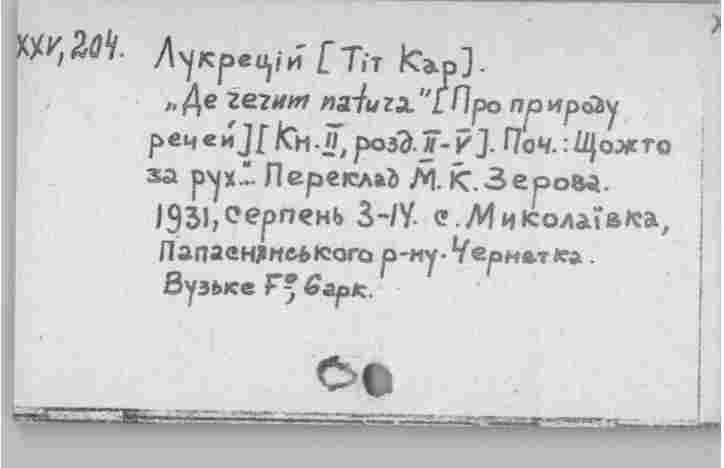 XXV, 204.
Лукрецій [Тіт Кар].
„De rerum natura" [Про природу
речей] [Кн. II, розд. II-V]. Поч.: Щожто
за рух..." Переклад М. К. Зерова.
1931, серпень 3-14. с. Миколаївка,
Папаснянського р-ну. Чернетка.
Вузьке F°, 6 арк.